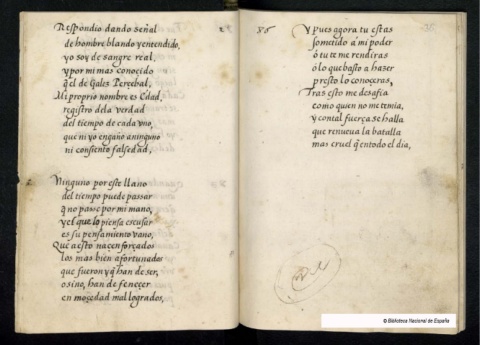 Respondio dando señal
de hombre blando y entendido,
yo soy de sangre real,
y por mi mas conocido
q̃ el de Galez Perçebal,
Mi proprio nombre es Edad,
registro dela verdad
del tiempo de cada vno,
que ni yo engaño aninguno
ni consiento falsedad,
Ninguno por este llano
del tiempo puede passar
q̃ no passe por mi mano,
y el que lo piensa escusar
es su pensamiento vano,
Que a esto naçen forçados
los mas bien afortunados
que fueron y q̃ han de ser,
o sino, han de feneçer
en moçedad mal logrados,
86
Y pues agora tu estas
sometido a mi poder
ó tu te me rendiras
ó lo que basto a hazer
presto lo conoçeras,
Tras esto me desafia
como quien no me temia,
y con tal fuerça se halla
que renueua la batalla
mas cruel q̃ en todo el dia,
© Biblioteca Nacional de España